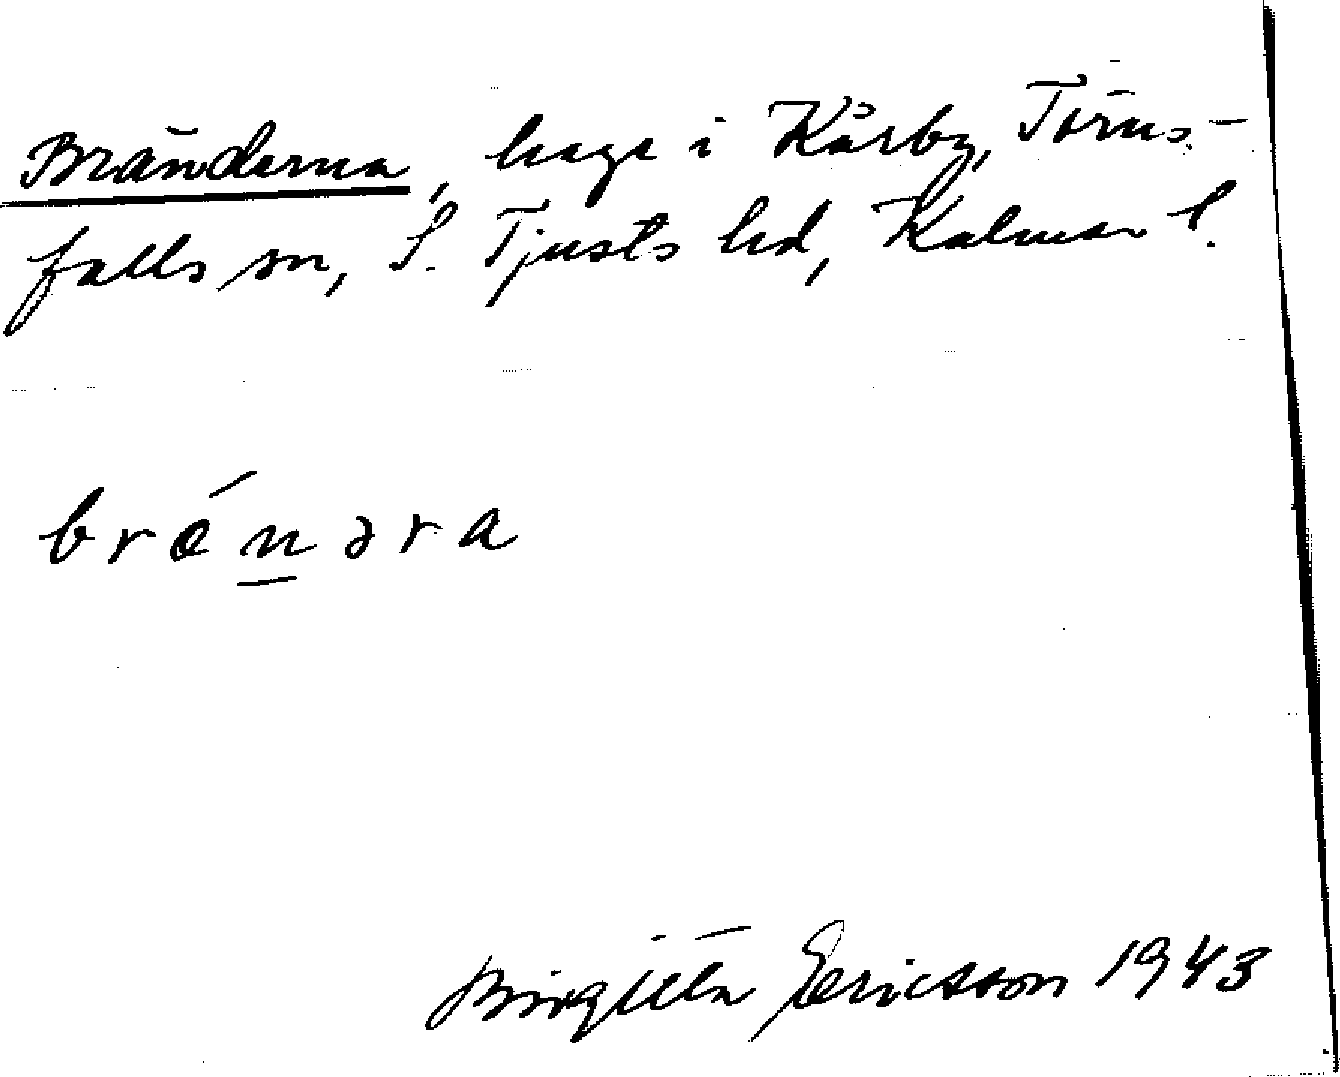 Bränderna, hage i Kårby, Törns-
falls sn, S. Tjusts hd, Kalmar l.
brǽn̲əra
Birgitta Ericsson 1943